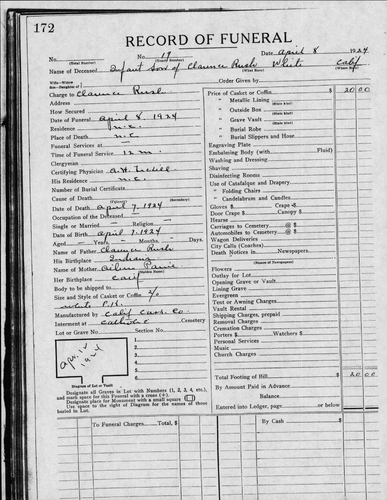 172
RECORD OF FUNERAL
No. No. 17 Date April 8 1924
(Total Number) (Yearly Number)
Name of Deceased Infant Son of Clarence Rush White Calif
(What Race) (Where Born)
Wife—Widow
Son—Daughter of Order Given by
Charge to Clarence Rush
Address
How Secured
Date of Funeral April 8, 1924
Residence N.C.
Place of Death N.C.
Funeral Services at —
Time of Funeral Service 12 m.
Clergyman
Certifying Physician
His Residence N.C.
Number of Burial Certificate
Cause of Death
(Primary) (Secondary)
Date of Death April 7, 1924
Occupation of the Deceased —
Single — Married — Religion
Date of Birth April 7, 1924
Aged — Years, — Months, — Days.
Name of Father Clarence Rush
His Birthplace Indiana
Name of Mother
(Maiden Name)
Her Birthplace Calif
Body to be shipped to
Size and Style of Casket or Coffin 2/0
White
Manufactured by Calif Cask. Co.
Interment at Catholic Cemetery
Lot or Grave No. Section No.
Apr. 1924
1.
2.
3.
4.
5.
6.
Diagram of Lot or Vault
Designate all Graves in Lot with Numbers (1, 2, 3, 4, etc.),
and mark space for this Funeral with a cross (+).
Designate place for Monument with a small square
Use space to right of Diagram for names of those
buried in Lot.
Price of Casket or Coffin $ 20 00
" Metallic Lining (State kind)
" Outside Box (State kind)
" Grave Vault (State kind)
" Burial Robe (State kind)
" Burial Slippers and Hose
Engraving Plate
Embalming Body (with Fluid)
Washing and Dressing
Shaving
Disinfecting Rooms
Use of Catafalque and Drapery
" Folding Chairs
" Candelabrum and Candles
Gloves $ Crape $
Door Crape $ Canopy $
Hearse
Carriages to Cemetery @ $
Automobiles to Cemetery @ $
Wagon Deliveries
City Calls (Coaches)
Death Notices in Newspapers
(Names of Newspapers)
Flowers
Outlay for Lot
Opening Grave or Vault
Lining Grave
Evergreen
Tent or Awning Charges
Vault Rental
Shipping Charges, prepaid
Removal Charges
Cremation Charges
Porters $ Watchers $
Personal Services
Music
Church Charges
Total Footing of Bill $ 20 00
By Amount Paid in Advance
Balance
Entered into Ledger, page or below.
To Funeral Charges, Total, $
By Cash $